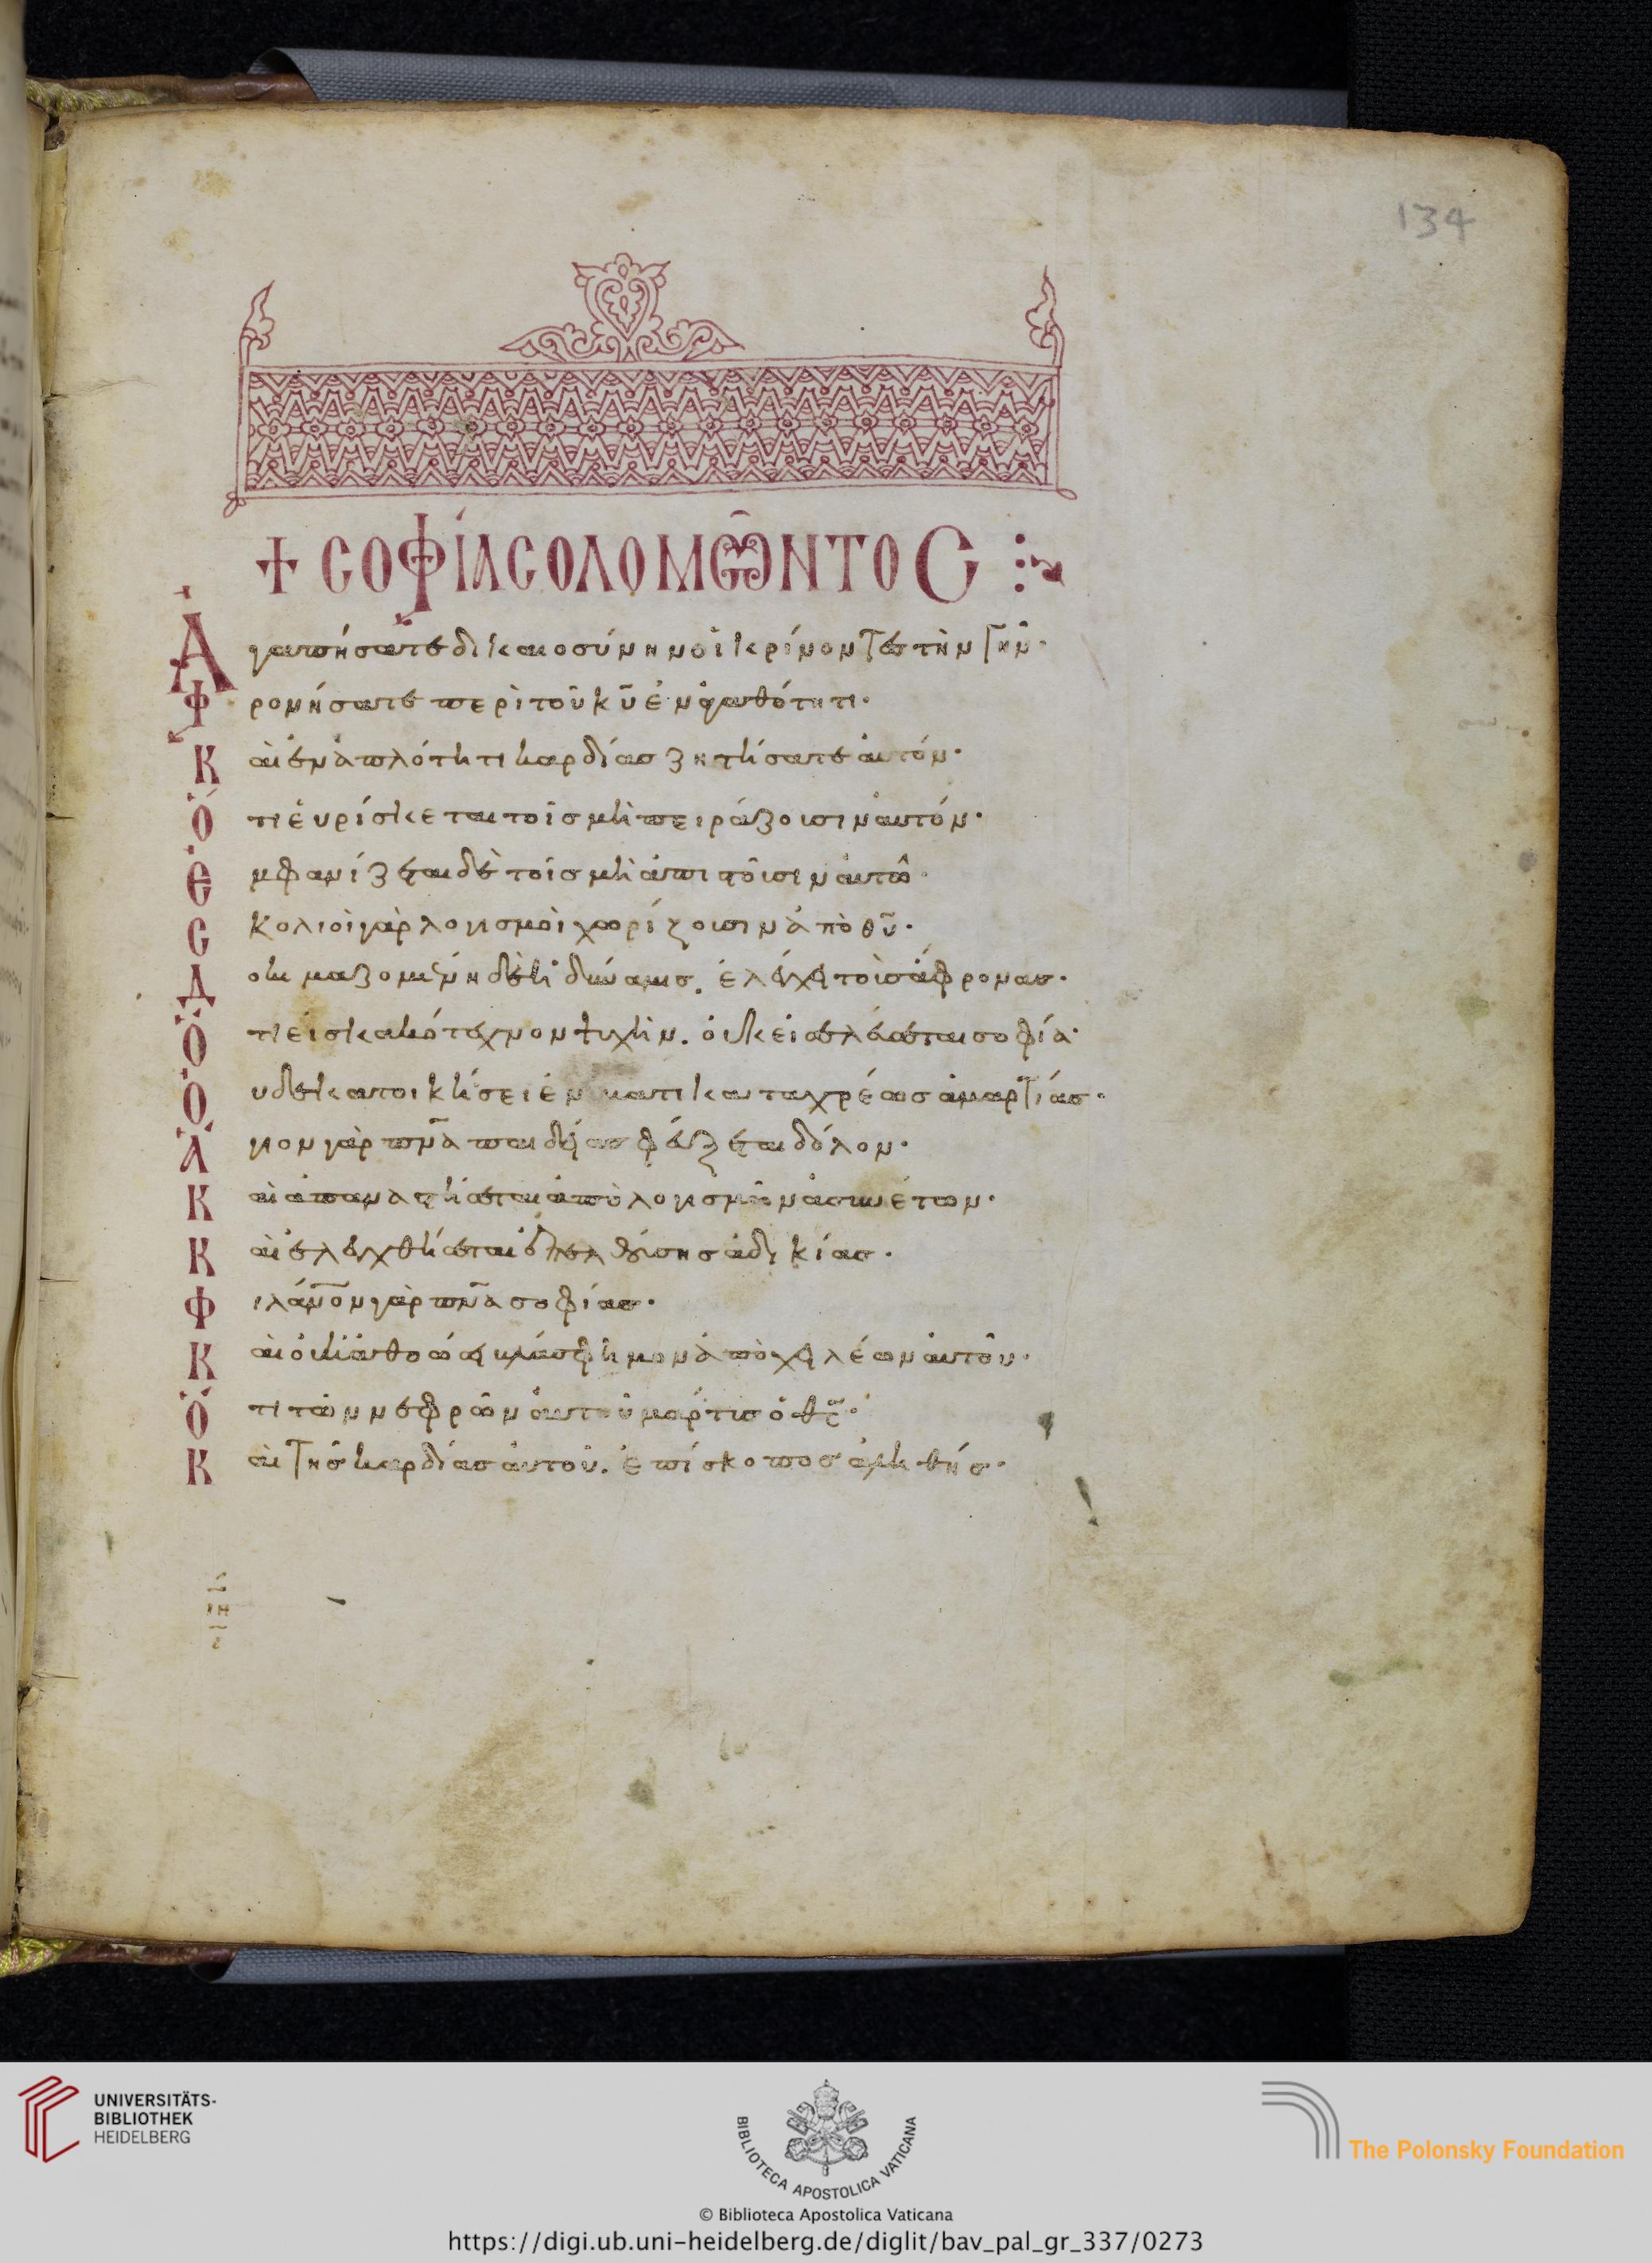 134
+ ΣΟΦΊΑ ΣΟΛΟΜῶΝΤΟΣ
Ἀγαπήσατε δικαιοσύνην οἱ κρίνοντες τὴν γῆν·
Φρονήσατε περὶ τοῦ κ̅υ̅ ἐν ἀγαθότητι·
Καὶ ἐν ἁπλότητι καρδίας ζητήσατε αὐτόν·
Ὅτι εὑρίσκεται τοῖς μὴ πειράζουσιν αὐτόν·
Ἐμφανίζεται δὲ τοῖς μὴ ἀπιστοῦσιν αὐτῶ·
Σκολιοὶ γὰρ λογισμοὶ χωρίζουσιν ἀπὸ θ̅υ̅·
Δοκιμαζομένη δὲ ἡ δύναμις. ἐλέγχει τοὺς ἄφρονας·
Ὅτι εἰς κακότεχνον ψυχὴν. οὐκ εἰσελεύσεται σοφία·
Οὐδὲ κατοικήσει ἐν σώματι κατάχρεω ἁμαρτίας·
Ἅγιον γὰρ π̅ν̅α̅ παιδείας φεύξεται δόλον·
Καὶ ἀπαναστήσεται ἀπὸ λογισμῶν ἀσυνέτων·
Καὶ ἐλεγχθήσεται ἐπελθούσης ἀδικίας·
Φιλάν̅ο̅ν γὰρ π̅ν̅α̅ σοφίας·
Καὶ οὐκ ἀθοώσει βλάσφημον ἀπὸ χειλέων αὐτοῦ·
Ὅτι τῶν νεφρῶν αὐτοῦ μάρτυς ὁ θ̅ς̅·
Καὶ τῆς καρδίας αὐτοῦ. ἐπίσκοπος ἀληθής·
UNIVERSITÄTS-
BIBLIOTHEK
HEIDELBERG
BIBLIOTECA APOSTOLICA VATICANA
The Polonsky Foundation
© Biblioteca Apostolica Vaticana
https://digi.ub.uni-heidelberg.de/diglit/bav_pal_gr_337/0273